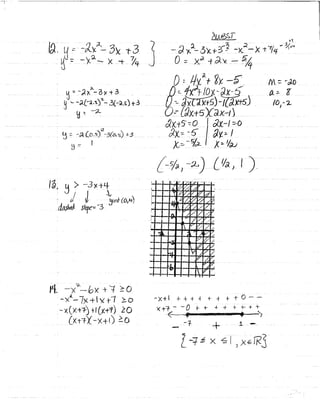 SUBST
12. y = -2x² - 3x + 3
y = -x² - x + 7/4
-2x² - 3x + 3 = -x² - x + 7/4
0 = x² + 2x - 5/4
0 = 4x² + 8x - 5
m = -20
a = 8
10, -2
0 = 4x² + 10x - 2x - 5
0 = 2x(2x+5) - 1(2x+5)
0 = (2x+5)(2x-1)
2x+5=0 2x-1=0
2x = -5 2x = 1
x = -5/2 x = 1/2
y = -2x² - 3x + 3
y = -2(-2.5)² - 3(-2.5) + 3
y = -2
y = -2(0.5)² - 3(0.5) + 3
y = 1
(-5/2, -2) (1/2, 1)
13. y > -3x+4
dashed slope = -3 yint (0,4)
14. -x² - 6x + 7 ≥ 0
-x² - 7x + 1x + 7 ≥ 0
-x(x+7) + 1(x+7) ≥ 0
(x+7)(-x+1) ≥ 0
-x+1 + + + + + + + 0 - -
x+7 - - 0 + + + + + + +
- -7 + 1 -
{-7 ≤ x ≤ 1, x∈R}